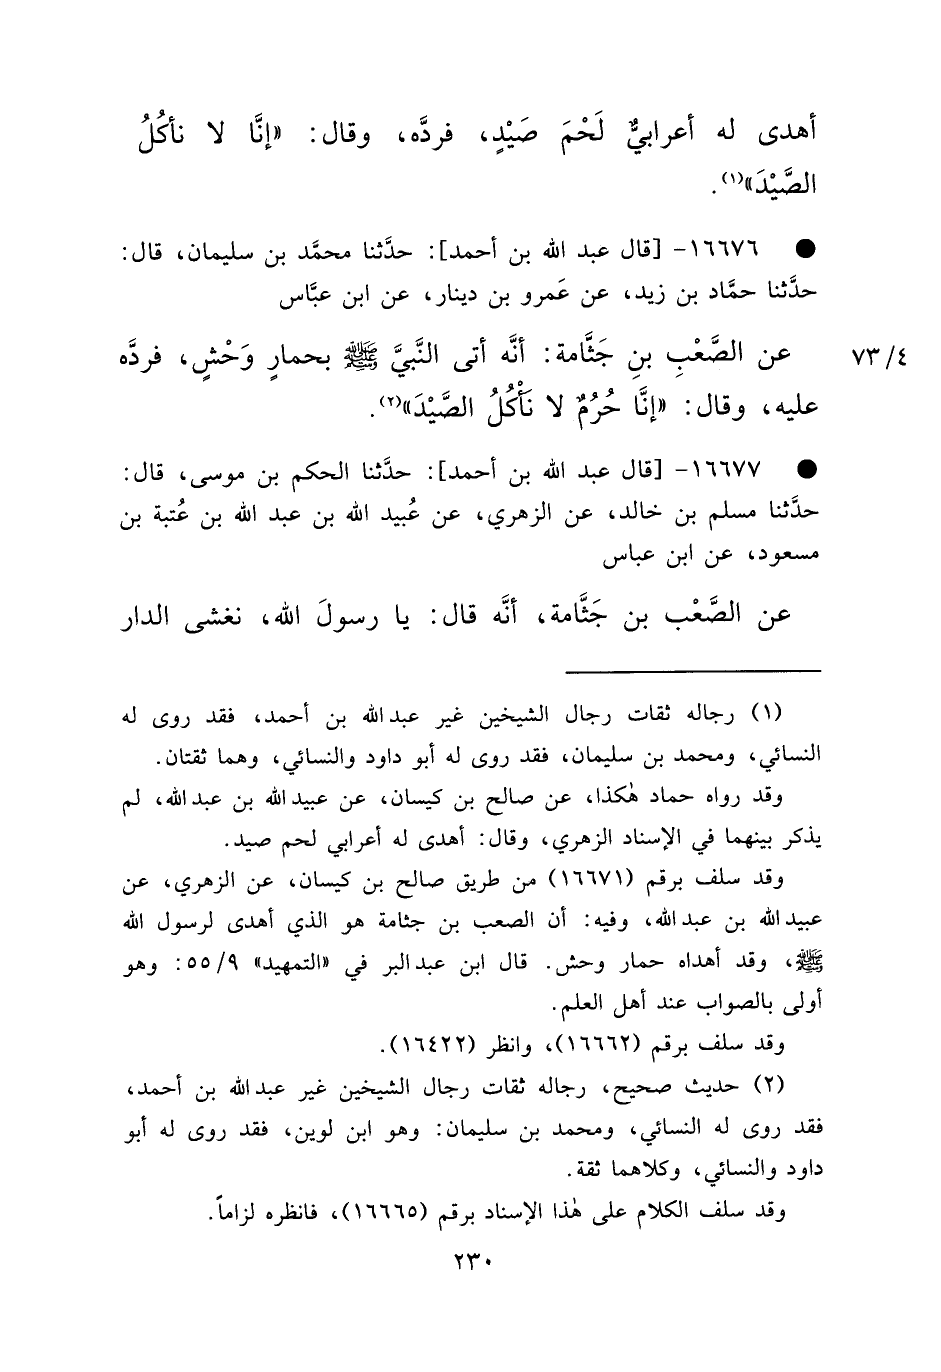 أهدى له أعرابيٌّ لَحْمَ صَيْدٍ، فردَّه، وقال: «إنَّا لا نأكُلُ
الصَّيْدَ»(١).
● ١٦٦٧٦- [قال عبد الله بن أحمد]: حدَّثنا محمَّد بن سليمان، قال:
حدَّثنا حمَّاد بن زيد، عن عَمرو بن دينار، عن ابن عبَّاس
عن الصَّعْبِ بنِ جَثَّامة: أنَّه أتى النَّبيَّ ﷺ بحمارٍ وَحْشٍ، فردَّه
٧٣/٤
عليه، وقال: «إنَّا حُرُمٌ لا نَأْكُلُ الصَّيْدَ»(٢).
● ١٦٦٧٧- [قال عبد الله بن أحمد]: حدَّثنا الحكم بن موسى، قال:
حدَّثنا مسلم بن خالد، عن الزهري، عن عُبيد الله بن عبد الله بن عُتبة بن
مسعود، عن ابن عباس
عن الصَّعْب بن جَثَّامة، أنَّه قال: يا رسولَ الله، نغشى الدار
(١) رجاله ثقات رجال الشيخين غير عبد الله بن أحمد، فقد روى له
النسائي، ومحمد بن سليمان، فقد روى له أبو داود والنسائي، وهما ثقتان.
وقد رواه حماد هٰكذا، عن صالح بن كيسان، عن عبيد الله بن عبد الله، لم
يذكر بينهما في الإسناد الزهري، وقال: أهدى له أعرابي لحم صيد.
وقد سلف برقم (١٦٦٧١) من طريق صالح بن كيسان، عن الزهري، عن
عبيد الله بن عبد الله، وفيه: أن الصعب بن جثامة هو الذي أهدى لرسول الله
ﷺ، وقد أهداه حمار وحش. قال ابن عبد البر في «التمهيد» ٥٥/٩: وهو
أولى بالصواب عند أهل العلم.
وقد سلف برقم (١٦٦٦٢)، وانظر (١٦٤٢٢).
(٢) حديث صحيح، رجاله ثقات رجال الشيخين غير عبد الله بن أحمد،
فقد روى له النسائي، ومحمد بن سليمان: وهو ابن لوين، فقد روى له أبو
داود والنسائي، وكلاهما ثقة.
وقد سلف الكلام على هٰذا الإسناد برقم (١٦٦٦٥)، فانظره لزاماً.
٢٣٠